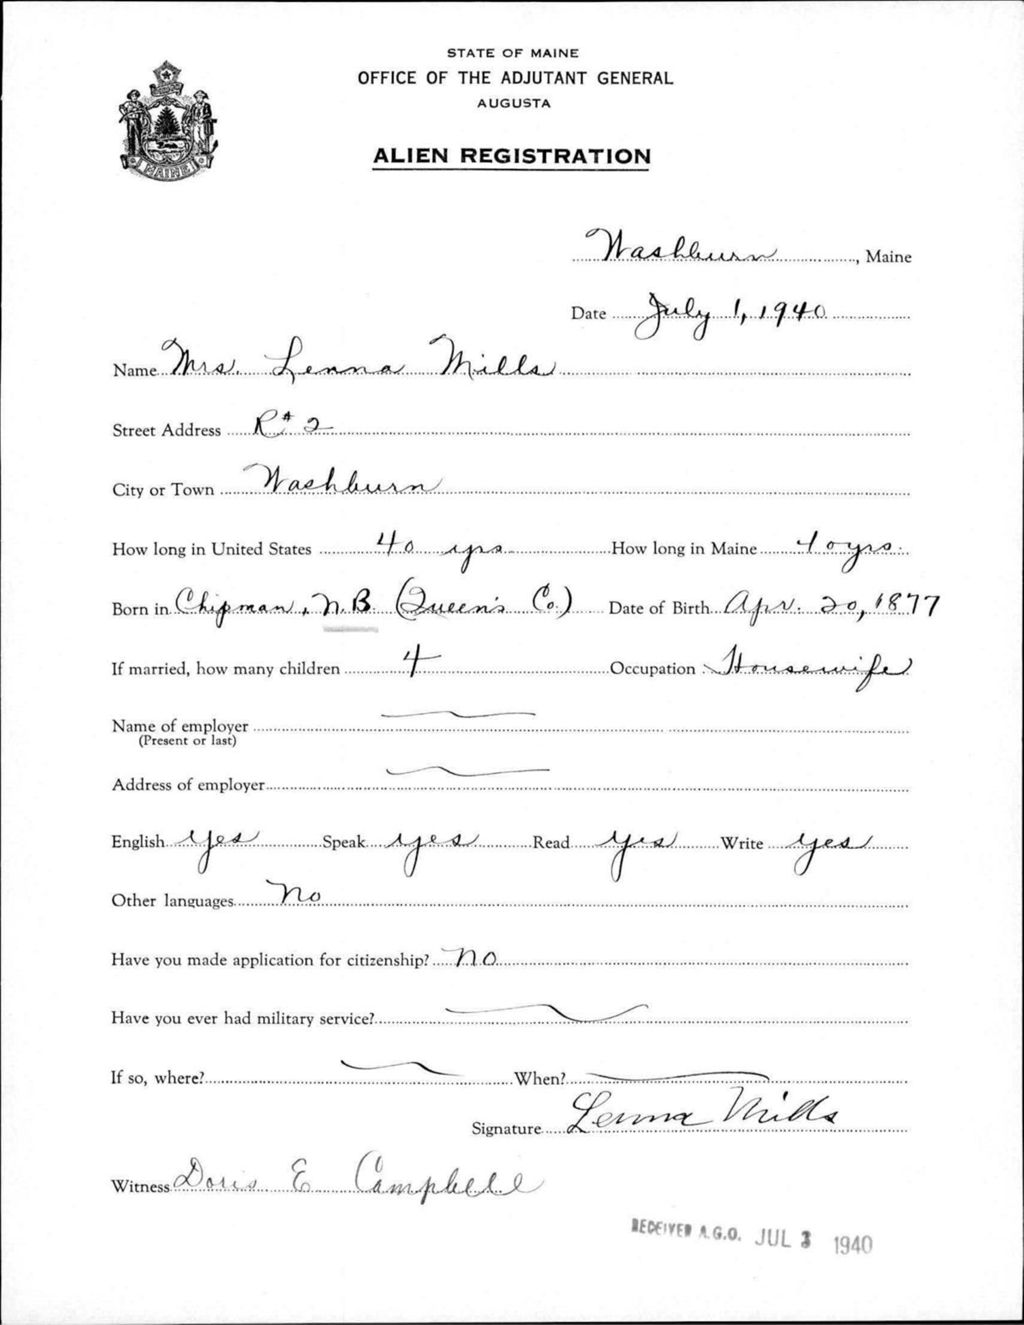 STATE OF MAINE
OFFICE OF THE ADJUTANT GENERAL
AUGUSTA
ALIEN REGISTRATION
MAINE
Washburn, Maine
Date July 1, 1940
Name Mrs. Lenna Mills
Street Address R#2
City or Town Washburn
How long in United States 40 yrs How long in Maine 40 yrs.
Born in Chipman, N.B. (Queen's Co.) Date of Birth Apr. 20, 1877
If married, how many children 4 Occupation Housewife
Name of employer
(Present or last)
Address of employer
English yes Speak yes Read yes Write yes
Other languages No
Have you made application for citizenship? no
Have you ever had military service?
If so, where? When?
Signature Lenna Mills
Witness Doris E Campbell
RECEIVED A.G.O. JUL 3 1940